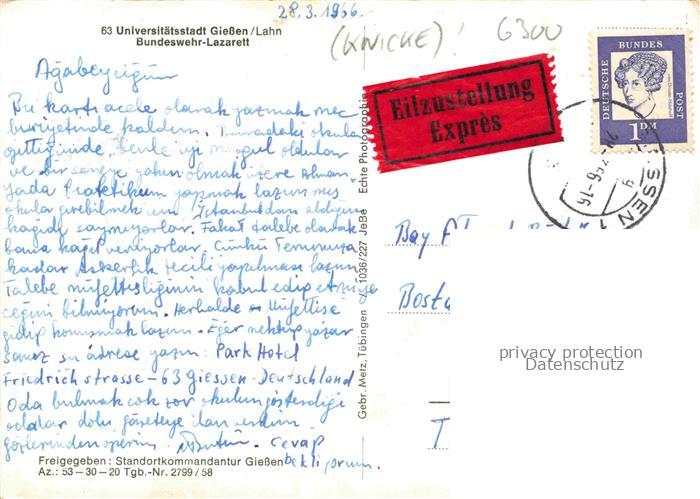 28.3.1966.
63 Universitätsstadt Gießen/Lahn
Bundeswehr-Lazarett
(KNICKE)! 6300
DEUTSCHE BUNDES POST
1 DM
Eilzustellung
Exprès
Ağabeyciğim
Bu kartı acele olarak yazmak mec
buriyetinde kaldım. Buradaki okula
gittiğimde, benle iyi meşgul oldular
ve bir seneye yakın olmak üzere Alman-
yada Praktikum yapmak lazım mış
okula girebilmek için. İstanbuldan aldığım
kağıdı saymıyorlar. Fakat talebe olarak
bana kağıt veriyorlar. Çünkü Temmuza
kadar Askerlik tecili yapılması lazım
Talebe müfettişliğinin kabul edip etmiye
ceğini bilmiyorum. Herhalde Müfettişe
gidip konuşmak lazım. Eğer mektup yazar
sanız şu adrese yazın: Park Hotel
Friedrichstrasse-63 Giessen-Deutschland
Oda bulmak çok zor okulun gösterdiği
odalar dolu gazeteye ilan verdim.
gözlerinden öperim. Cevap
bekliyorum.
Bay
Bosta
T
Gebr. Metz, Tübingen 1036/227 JeBe Echte Photographie
privacy protection
Datenschutz
Freigegeben: Standortkommandantur Gießen
Az.: 53-30-20 Tgb.-Nr. 2799/58